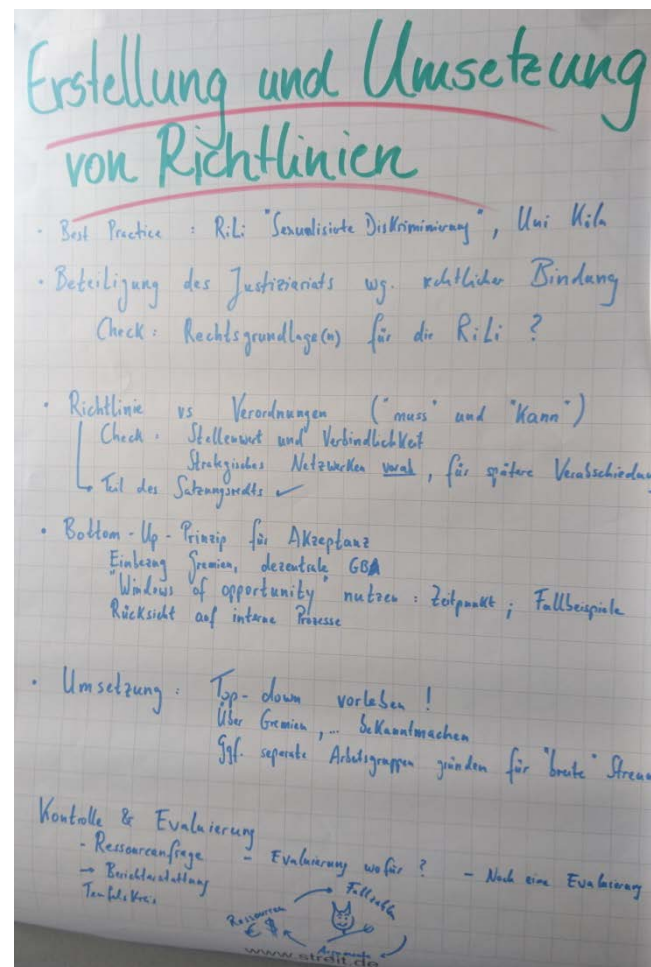 Erstellung und Umsetzung
von Richtlinien
· Best Practice : RiLi "Sexualisierte Diskriminierung", Uni Köln
· Beteiligung des Justiziariats wg. rechtlicher Bindung
Check: Rechtsgrundlage(n) für die RiLi ?
· Richtlinie vs Verordnungen ("muss" und "Kann")
Check: Stellenwert und Verbindlichkeit
Strategisches Netzwerken vorab, für spätere Verabschiedung
↳ Teil des Satzungsrechts ✓
· Bottom-Up-Prinzip für Akzeptanz
Einbezug Gremien, dezentrale GBA
"Windows of opportunity" nutzen : Zeitpunkt ; Fallbeispiele
Rücksicht auf interne Prozesse
· Umsetzung : Top-down vorleben !
Über Gremien, ... bekanntmachen
Ggf. separate Arbeitsgruppen gründen für "breite" Streuu
Kontrolle & Evaluierung
- Ressourcenfrage - Evaluierung wofür ? - Noch eine Evaluierung
→ Berichterstattung
Teufelskreis
Fallzahlen
Ressourcen
€ $
Argumente
www.streit.de